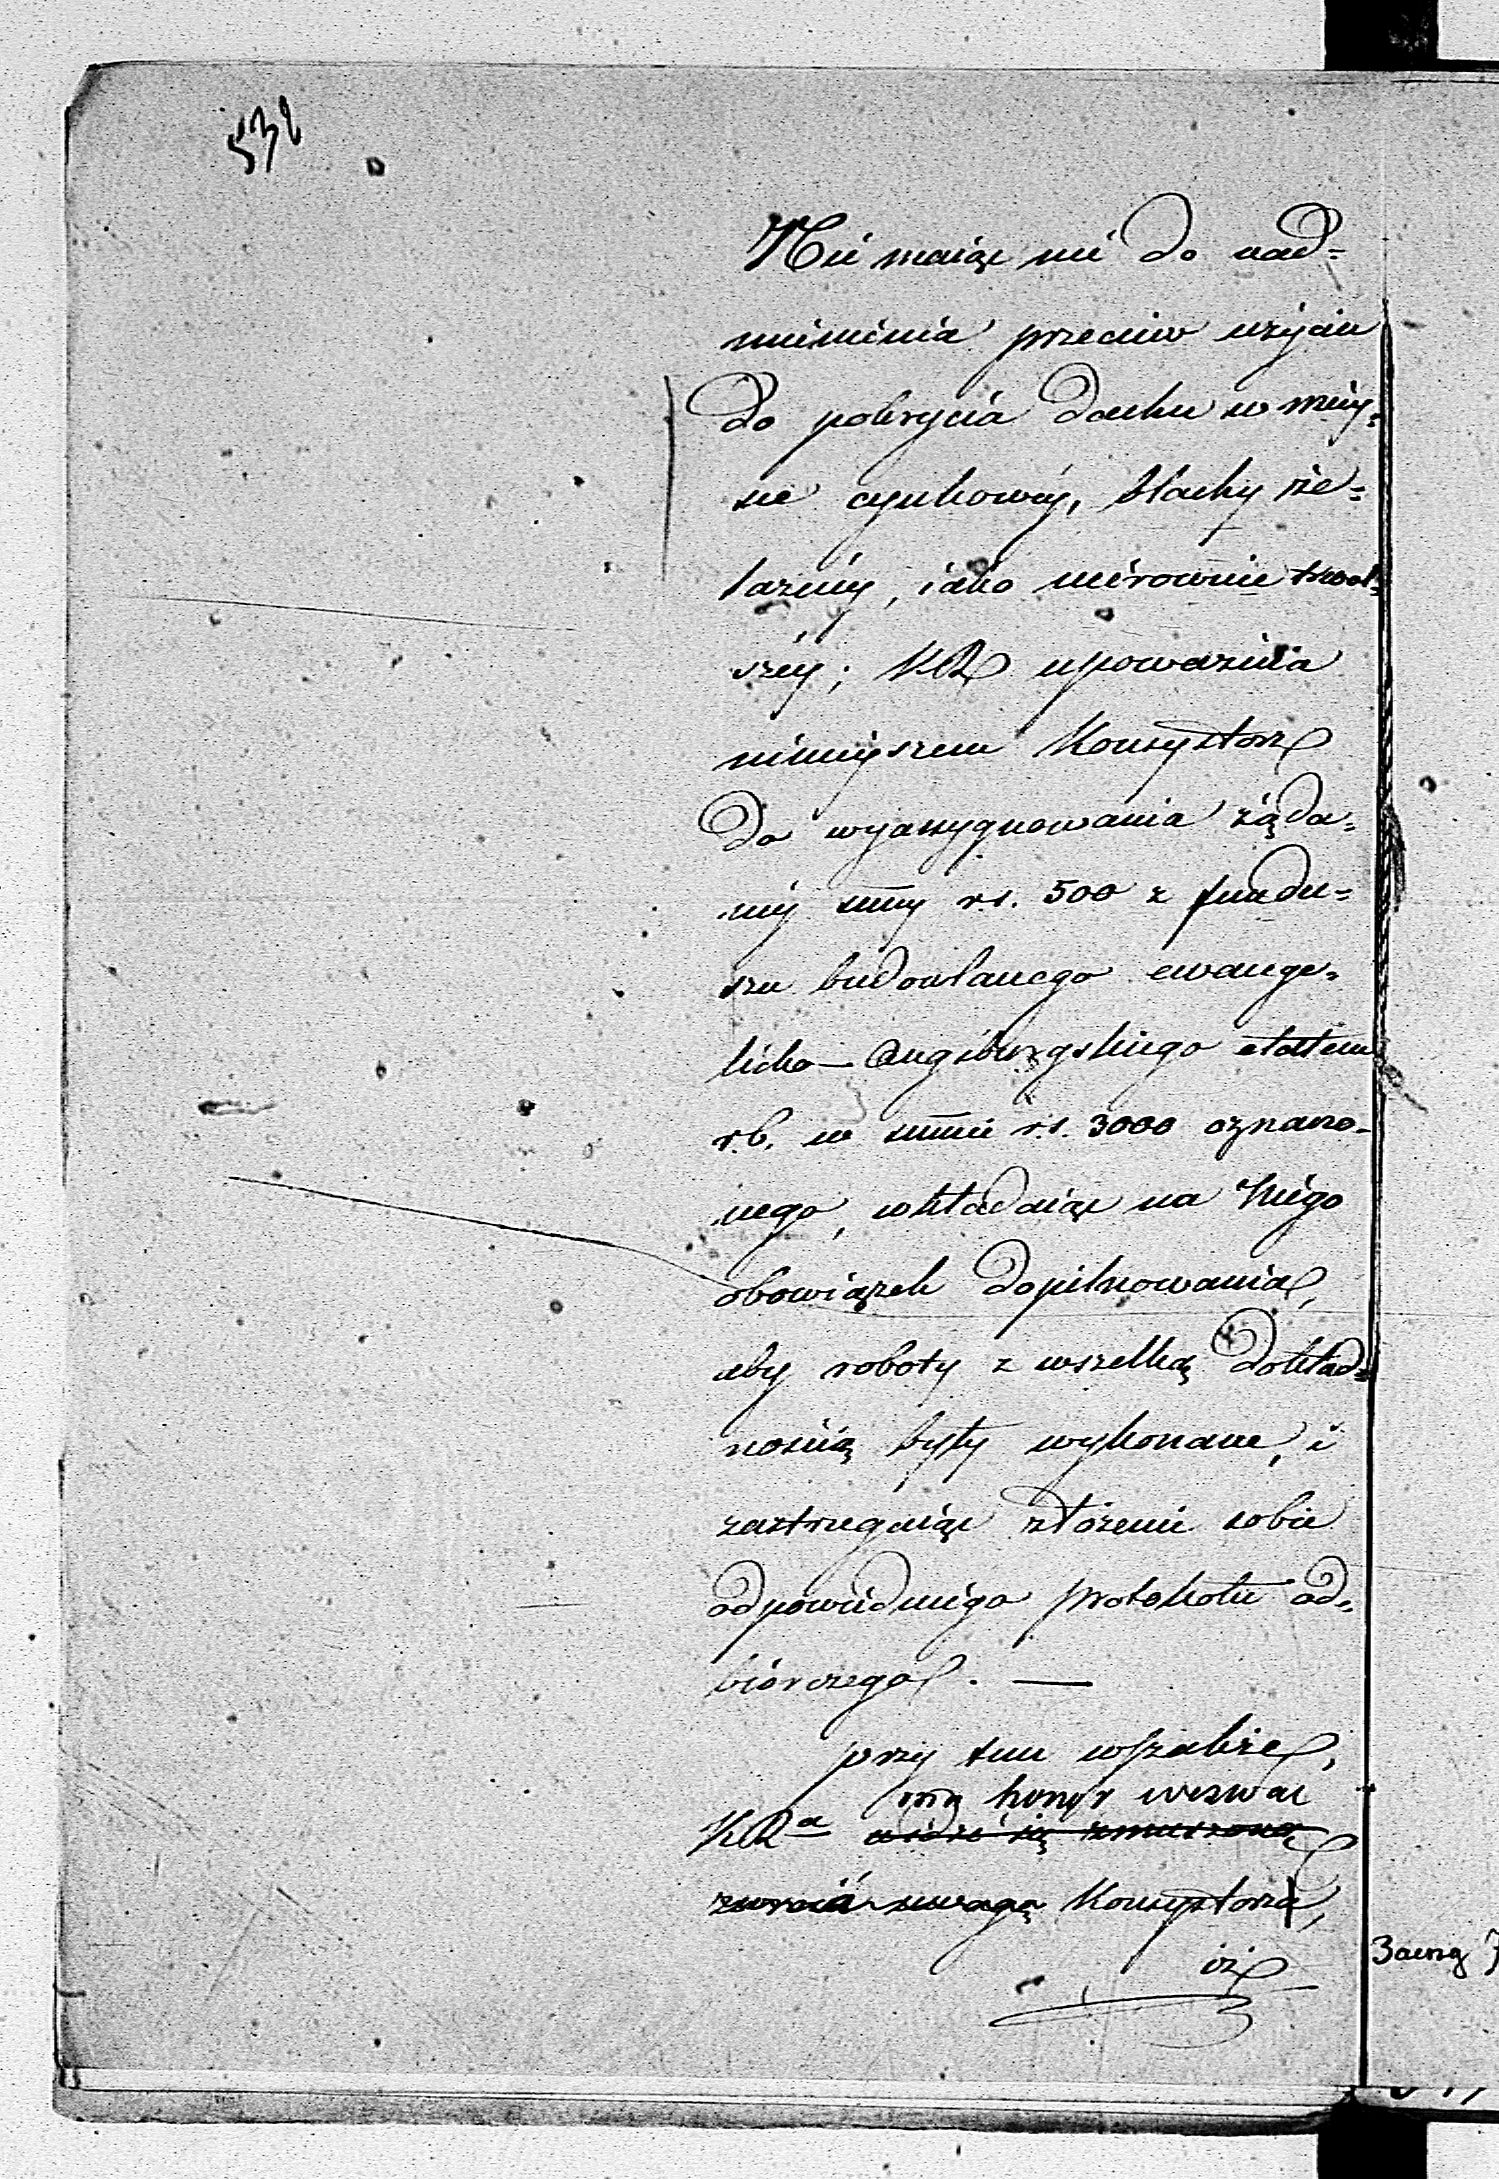 532
Nie maiąc nic do nad=
mienienia przeciw użyciu
do pokrycia dachu w miey=
sce cynkowéy, blachy że=
lazney, iako nierównie trwal=
széy; KR upoważnia
ninieyszem Konsystorz
do wyassygnowania żąda=
néy summy rs. 500 z fundu=
szu budowlanego ewange=
licko—Augsburgskiego etatem
r.b. w summie rs. 3000 oznaczo=
nego, wkładaiąc na Niego
obowiązek dopilnowania,
aby roboty z wszelką dokład=
nością były wykonane, i
zastrzegaiąc złożenie sobie
odpowiedniego protokołu od=
biorczego. —
przy tem wszakże,
ma honor wezwać
KRa widzi się zmuszoną
zwrócić uwagę Konsystorza,
iż